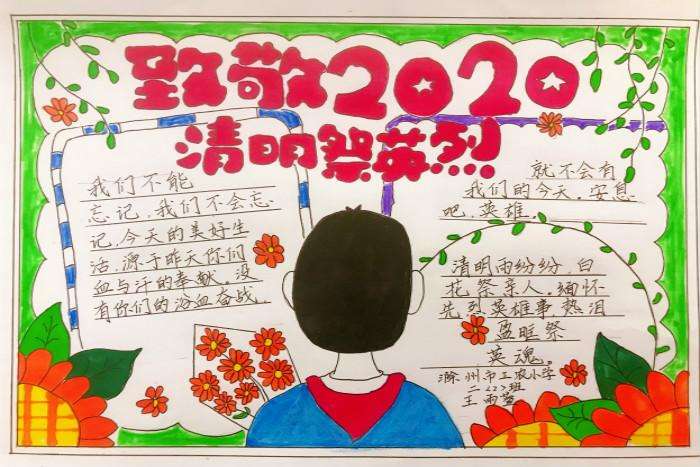 致敬2020
清明祭英烈
我们不能
忘记,我们不会忘
记,今天的美好生
活,源于昨天你们
血与汗的奉献。没
有你们的浴血奋战,
就不会有
我们的今天。安息
吧,英雄。
清明雨纷纷,白
花祭亲人,缅怀
先烈英雄事,热泪
盈眶祭
英魂。
滁州市工农小学
王雨